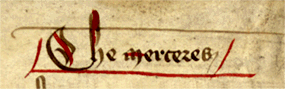 The merceres